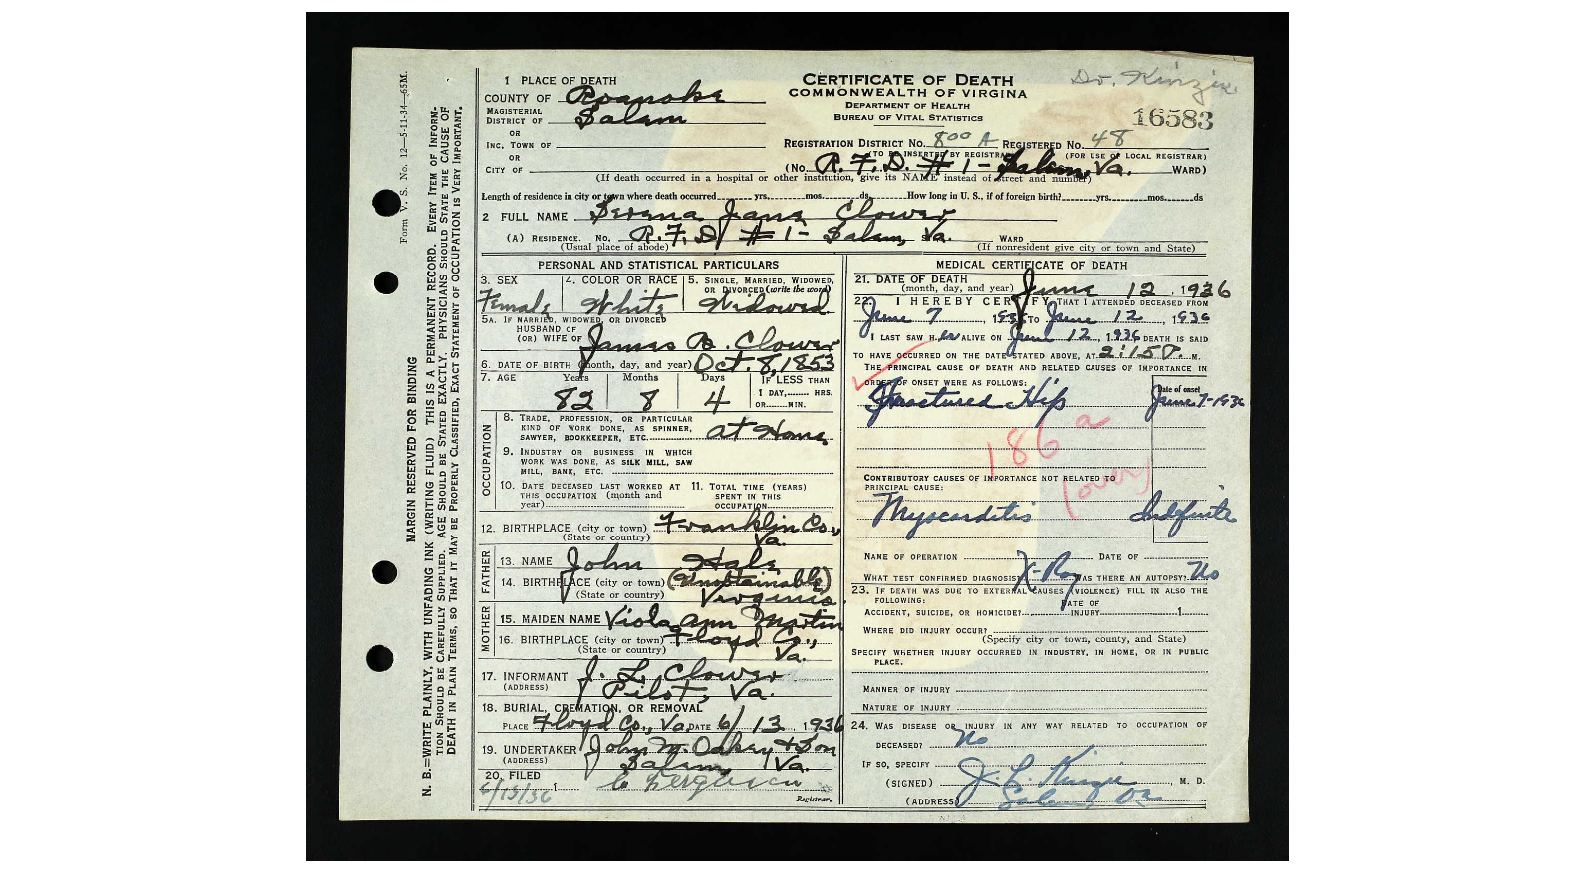 Form V. S. No. 12—5-11-34—65M.
MARGIN RESERVED FOR BINDING
N. B.—WRITE PLAINLY, WITH UNFADING INK (WRITING FLUID) THIS IS A PERMANENT RECORD. EVERY ITEM OF INFORM-
TION SHOULD BE CAREFULLY SUPPLIED. AGE SHOULD BE STATED EXACTLY. PHYSICIANS SHOULD STATE THE CAUSE OF
DEATH IN PLAIN TERMS, SO THAT IT MAY BE PROPERLY CLASSIFIED, EXACT STATEMENT OF OCCUPATION IS VERY IMPORTANT.
1 PLACE OF DEATH
COUNTY OF Roanoke
MAGISTERIAL
DISTRICT OF Salem
OR
INC. TOWN OF
OR
CITY OF
CERTIFICATE OF DEATH
COMMONWEALTH OF VIRGINIA
DEPARTMENT OF HEALTH
BUREAU OF VITAL STATISTICS
Dr. Kinzie
16583
REGISTRATION DISTRICT NO. 800 A REGISTERED NO. 48
(TO BE INSERTED BY REGISTRAR) (FOR USE OF LOCAL REGISTRAR)
(No. R.F.D. #1 - Salem, Va. WARD)
(If death occurred in a hospital or other institution, give its NAME instead of street and number)
Length of residence in city or town where death occurred yrs. mos. ds. How long in U. S., if of foreign birth? yrs. mos. ds
2 FULL NAME Serena Jane Clower
(A) RESIDENCE. No. R.F.D. #1 - Salem, Va. WARD
(Usual place of abode) (If nonresident give city or town and State)
PERSONAL AND STATISTICAL PARTICULARS
3. SEX 4. COLOR OR RACE 5. SINGLE, MARRIED, WIDOWED,
OR DIVORCED (write the word)
Female White Widowed
5A. IF MARRIED, WIDOWED, OR DIVORCED
HUSBAND OF
(OR) WIFE OF James B. Clower
6. DATE OF BIRTH (month, day, and year) Oct. 8, 1853
7. AGE Years Months Days IF LESS THAN
1 DAY, HRS.
OR MIN.
82 8 4
OCCUPATION
8. TRADE, PROFESSION, OR PARTICULAR
KIND OF WORK DONE, AS SPINNER,
SAWYER, BOOKKEEPER, ETC. at Home
9. INDUSTRY OR BUSINESS IN WHICH
WORK WAS DONE, AS SILK MILL, SAW
MILL, BANK, ETC.
10. DATE DECEASED LAST WORKED AT 11. TOTAL TIME (YEARS)
THIS OCCUPATION (month and SPENT IN THIS
year) OCCUPATION
12. BIRTHPLACE (city or town) Franklin Co.,
(State or country) Va.
FATHER
13. NAME John Hale
14. BIRTHPLACE (city or town) (Unobtainable)
(State or country) Virginia
MOTHER
15. MAIDEN NAME Viola Ann Martin
16. BIRTHPLACE (city or town) Floyd Co.,
(State or country) Va.
17. INFORMANT J. L. Clower
(ADDRESS) Pilot, Va.
18. BURIAL, CREMATION, OR REMOVAL
PLACE Floyd Co., Va. DATE 6/13, 1936
19. UNDERTAKER John M. Oakey & Son
(ADDRESS) Salem, Va.
20. FILED
6/13/36 1 Ferguson
Registrar.
MEDICAL CERTIFICATE OF DEATH
21. DATE OF DEATH
(month, day, and year) June 12, 1936
22. I HEREBY CERTIFY THAT I ATTENDED DECEASED FROM
June 7, 1936 TO June 12, 1936
I LAST SAW H er ALIVE ON June 12, 1936 DEATH IS SAID
TO HAVE OCCURRED ON THE DATE STATED ABOVE, AT 2:15 P. M.
THE PRINCIPAL CAUSE OF DEATH AND RELATED CAUSES OF IMPORTANCE IN
ORDER OF ONSET WERE AS FOLLOWS:
Date of onset
Fractured Hip June 7-1936
186 a
(over)
CONTRIBUTORY CAUSES OF IMPORTANCE NOT RELATED TO
PRINCIPAL CAUSE:
Myocarditis Indefinite
NAME OF OPERATION DATE OF
WHAT TEST CONFIRMED DIAGNOSIS? X-Ray WAS THERE AN AUTOPSY? No
23. IF DEATH WAS DUE TO EXTERNAL CAUSES (VIOLENCE) FILL IN ALSO THE
FOLLOWING: DATE OF
ACCIDENT, SUICIDE, OR HOMICIDE? INJURY 1
WHERE DID INJURY OCCUR?
(Specify city or town, county, and State)
SPECIFY WHETHER INJURY OCCURRED IN INDUSTRY, IN HOME, OR IN PUBLIC
PLACE.
MANNER OF INJURY
NATURE OF INJURY
24. WAS DISEASE OR INJURY IN ANY WAY RELATED TO OCCUPATION OF
DECEASED? No
IF SO, SPECIFY
(SIGNED) J. L. Kinzie, M. D.
(ADDRESS) Salem, Va.